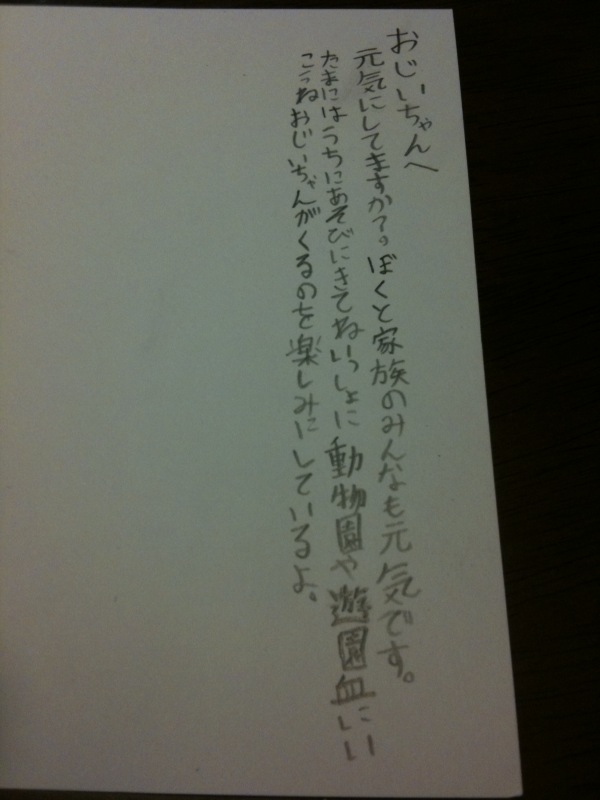 おじいちゃんへ
元気にしてますか?。ぼくと家族のみんなも元気です。
たまにはうちにあそびにきてねいっしょに動物園や遊園血にい
こうねおじいちゃんがくるのを楽しみにしているよ。